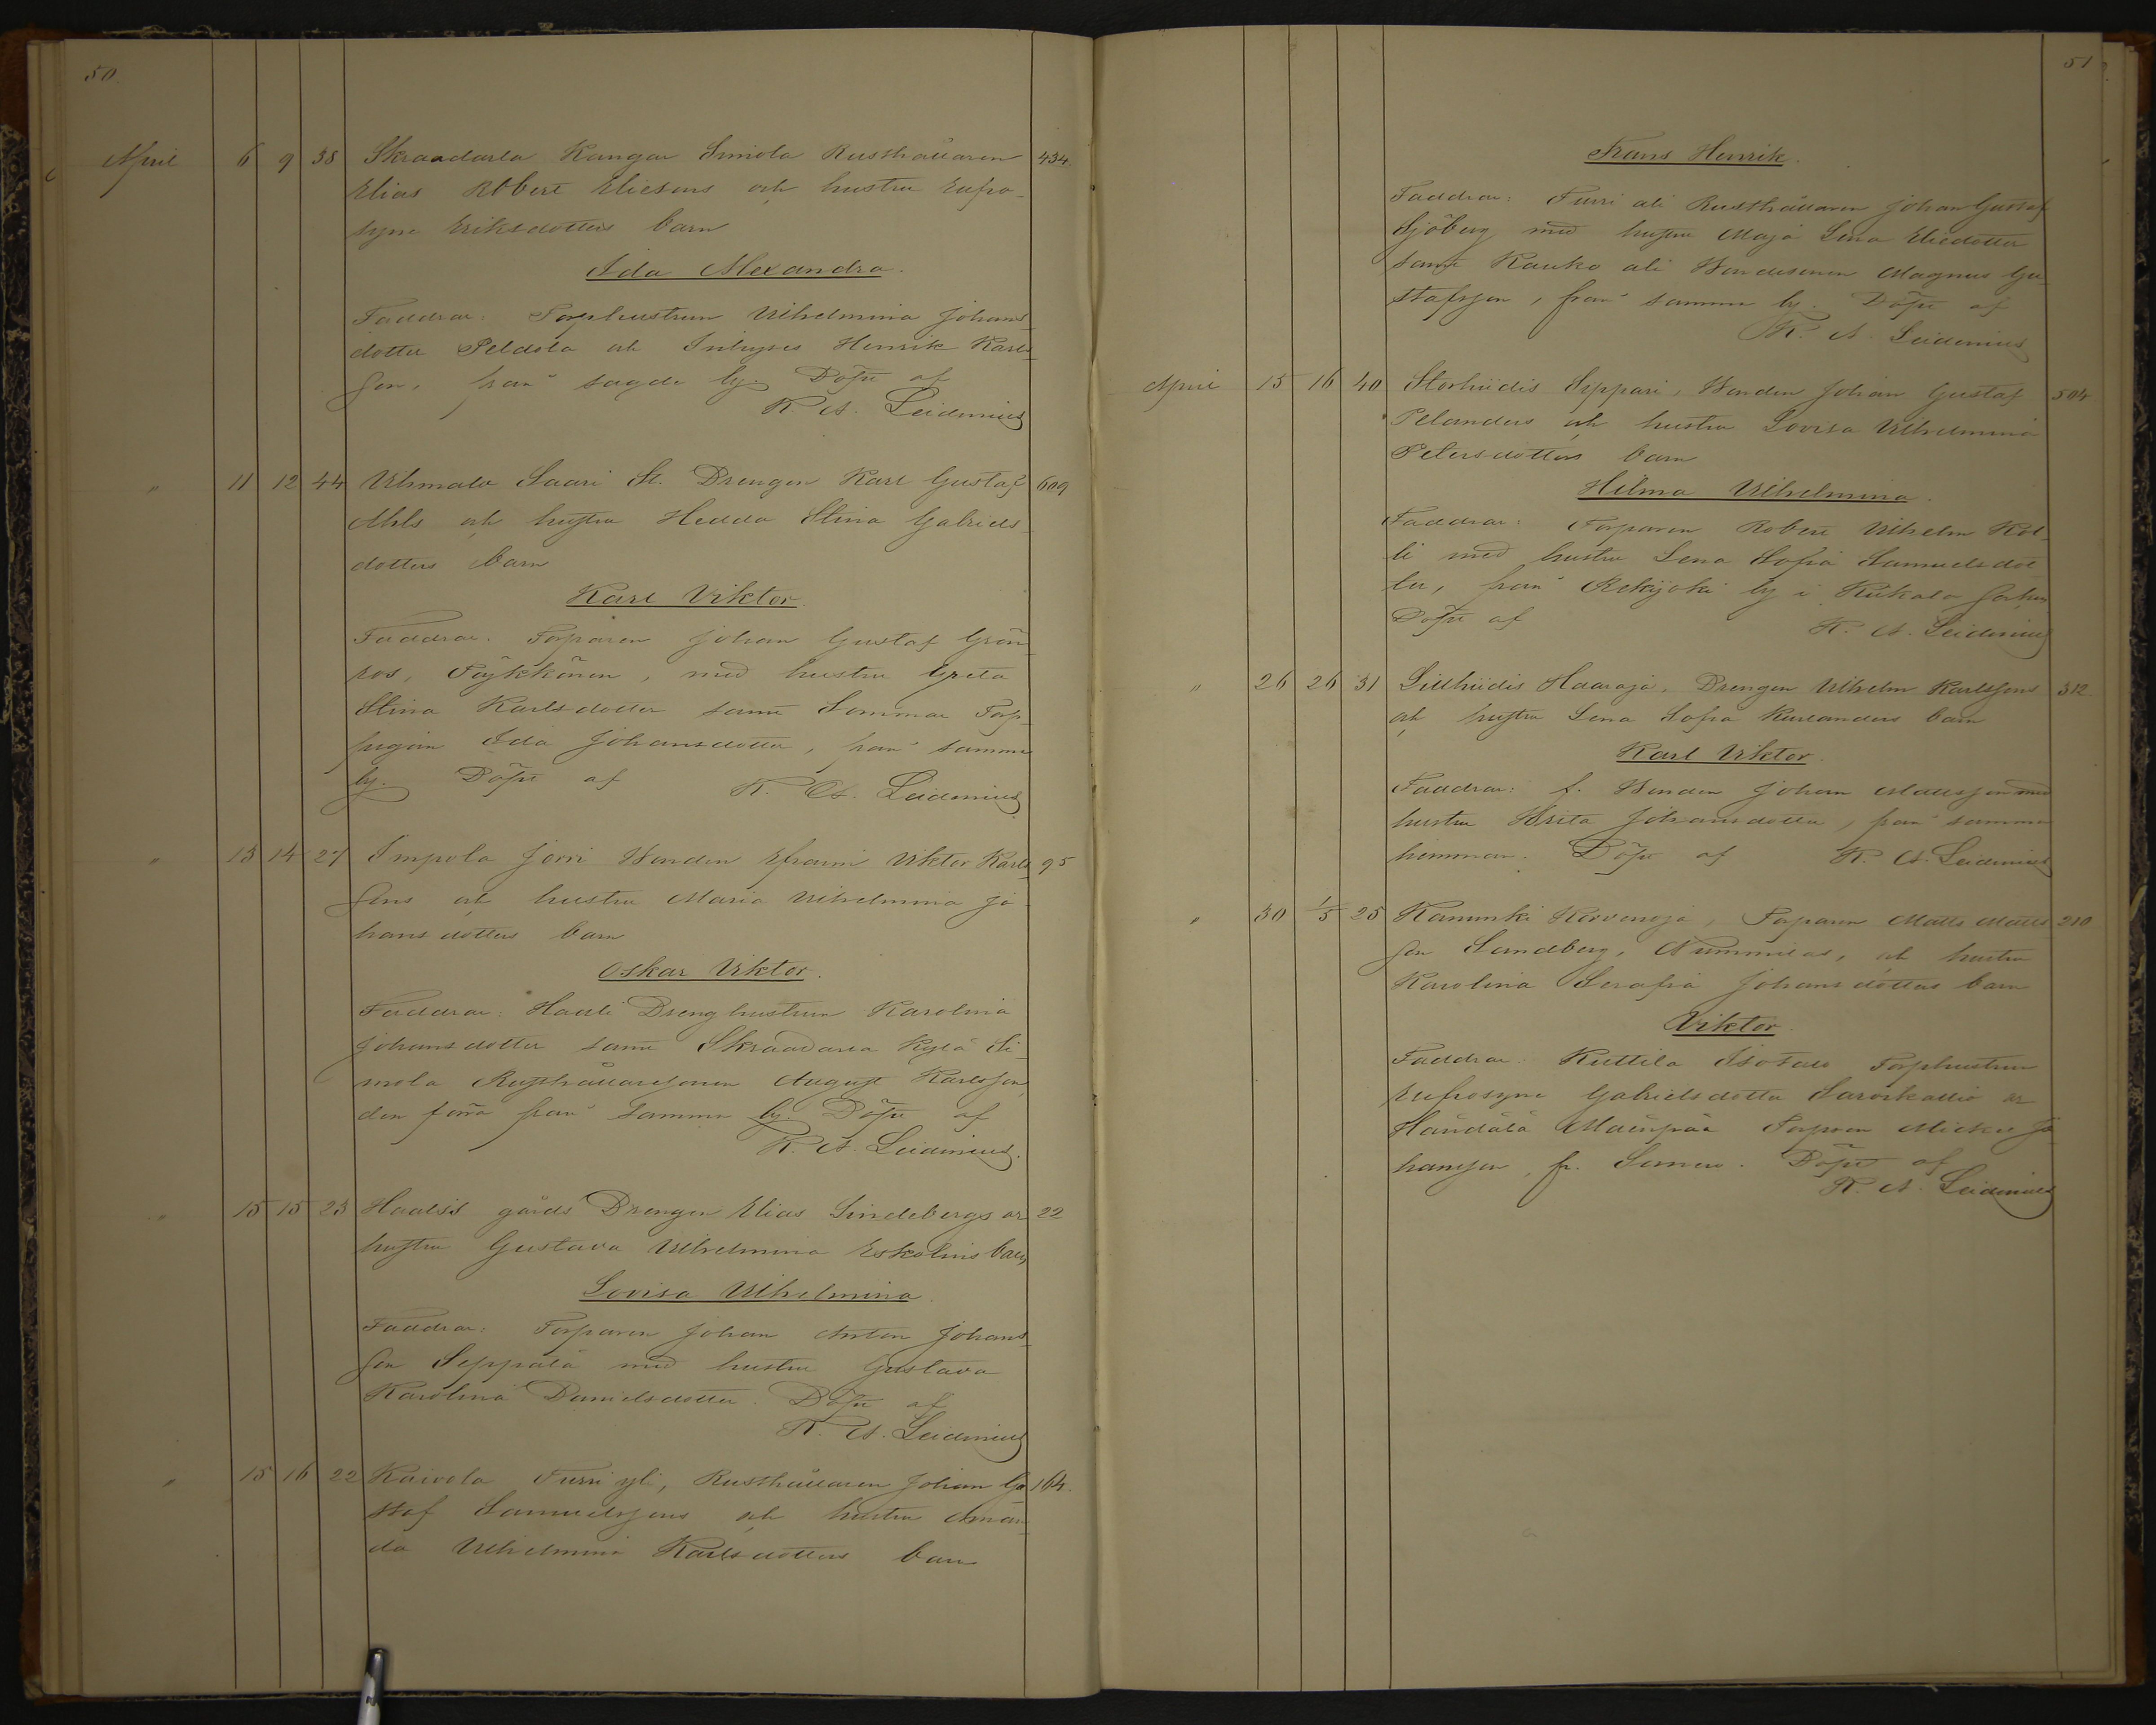 50.
April 6 9 38 Skraadarla Kangar Simola Rusthållaren 434.
Elias Robert Eliesons och hustru Eufro-
syne Eriksdotters barn
Ida Alexandra.
Faddrar: Torphustrun Vilhelmina Johans-
dotter Peldola och Inhyses Henrik Karls-
son, från sagde by. Döpt af
K. A. Leidenius
" 11 12 44 Saari St. Drengen Karl Gustaf 609
Ahls och hustru Hedda Stina Gabriels-
dotters barn
Karl Viktor.
Faddrar: Torparen Johan Gustaf Grön-
ros, Pöykkönen, med hustru Greta
Stina Karlsdotter samt Sommar Torp-
pigan Ida Johansdotter, från samma
by. Döpt af K. A. Leidenius
" 13 14 27 Impola Jorri Bonden Efraim Viktor Karls- 95
sons och hustru Maria Vilhelmina Jo-
hansdotters barn
Oskar Viktor.
Faddrar: Haali Drenghustrun Karolina
Johansdotter samt Skraadarla Kylä Si-
mola Rusthållaresonen August Karlsson
den förra från samma by. Döpt af
K. A. Leidenius.
" 15 15 23 Haalis gårds Drengen Elias Lindebergs och 22
hustru Gustava Vilhelmina Eskolins barn
Lovisa Vilhelmina.
Faddrar: Torparen Johan Anton Johans-
son Seppälä med hustru Gustava
Karolina Danielsdotter. Döpt af
K. A. Leidenius
" 15 16 22 Kaivola Furri yli, Rusthållaren Johan Gu- 164.
staf Samuelssons och hustru Aman-
da Vilhelmina Karlsdotters barn
51
Frans Henrik.
Faddrar: Furri ali Rusthållaren Johan Gustaf
Sjöberg med hustru Maja Lena Eliedotter
samt Kauko ali Bondesonen Magnus Gu-
stafsson, från samma by. Döpt af
K. A. Leidenius
April 15 16 40 Storhiidis Seppari, Bonden Johan Gustaf 504
Pelanders och hustru Lovisa Vilhelmina
Petersdotters barn
Hilma Vilhelmina.
Faddrar: Torparen Robert VilhelmKöl-
li med hustru Lena Sofia Samuelsdot-
ter, från Rekijoki by i Kiikala socken
Döpt af K. A. Leidenius
" 26 26 31 Lillhiidis Haaroja, Drengen Vilhelm Karlssons 312.
och hustru Lena Sofia Kurlanders barn
Karl Viktor.
Faddrar: f. Bonden Johan Mattsson med
hustru Brita Johansdotter, från samma
hemman. Döpt af K. A. Leidenius
" 30 1/5 25 Kaninki Korvenoja, Torparen Matts Matts- 210
son Sandberg, Nummilas, och hustru
Karolina Serafia Johansdotters barn
Viktor.
Faddrar: Kuttila Isotalo Torphustrun
Eufrosyne Gabrielsdotter Saviokallio och
Häntälä Mäenpää Torparen Mickel Jo-
hansson, fr. Somero. Döpt af
K. A. Leidenius